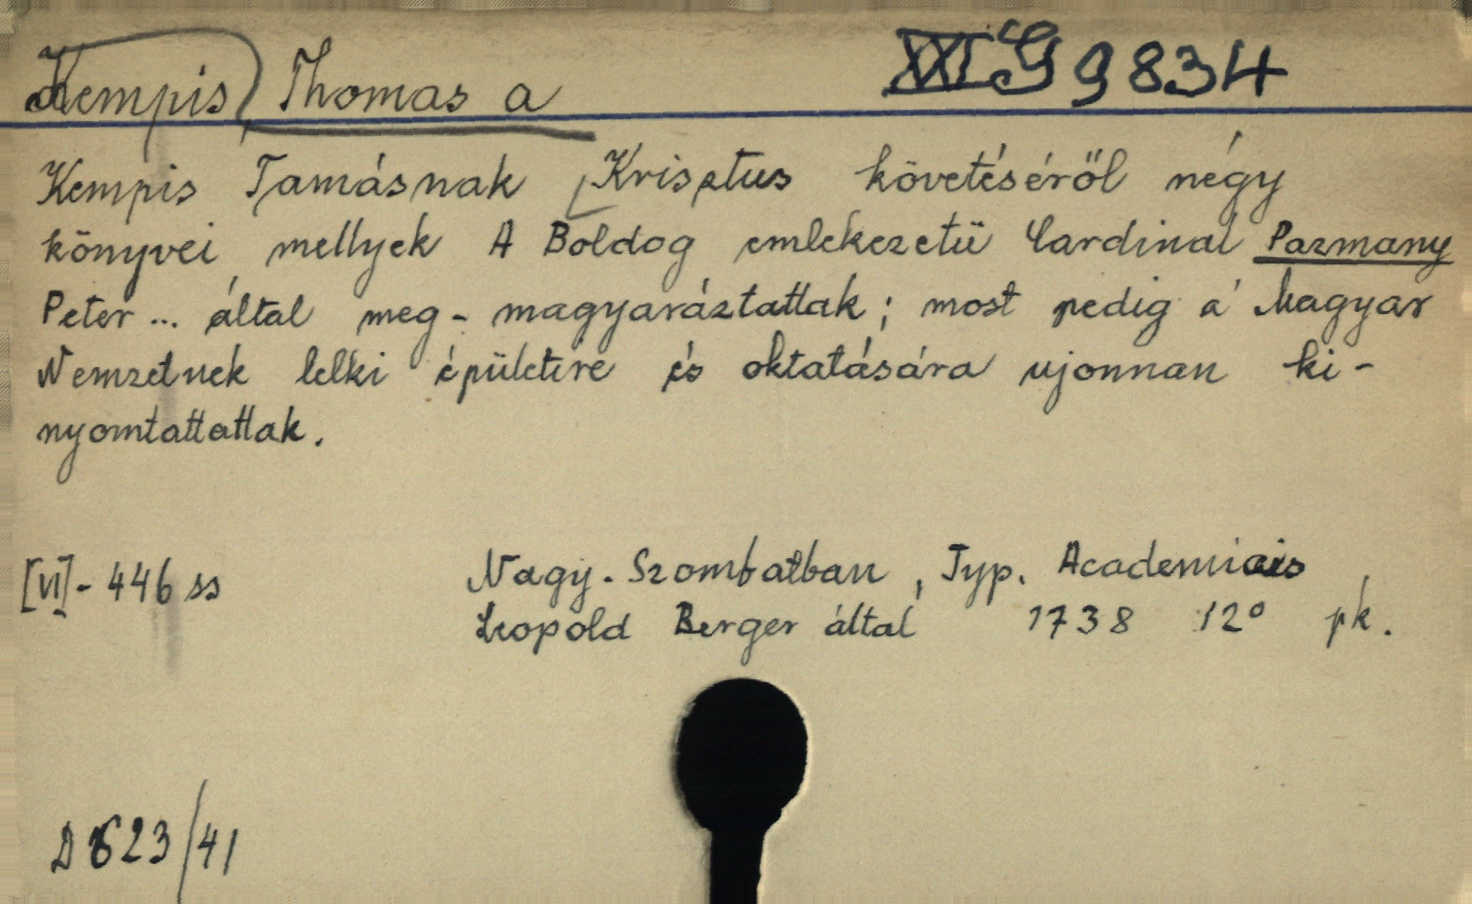 Kempis, Thomas a XXI G 9834
Kempis Tamásnak [Krisztus követéséről négy
könyvei, mellyek A Boldog emlekezetü Cardinal Pazmany
Peter ... által meg-magyaráztattak; most pedig a' Magyar
Nemzetnek lelki épületire és oktatására ujonnan ki-
nyomtattattak.
[VI]-446 ss Nagy-Szombatban, Typ. Academiais,
Leopold Berger által 1738 12° pk.
D 1623/41